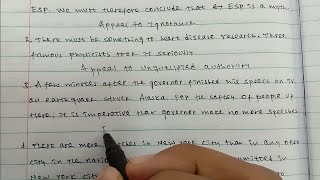 ESP. We must therefore conclude that ESP is a myth.
Appeal to Ignorance
2. There must be something to heart disease research. Three
famous physicists took it seriously.
Appeal to unqualified authority
3. A few minutes after the governor finished his speech on TV
an earthquake struck Alaska. For the safety of people up
there, it is imperative that governor make no more speeches.
4. There are more churches in New York city than in any other
city in the nation
New York city
committed in